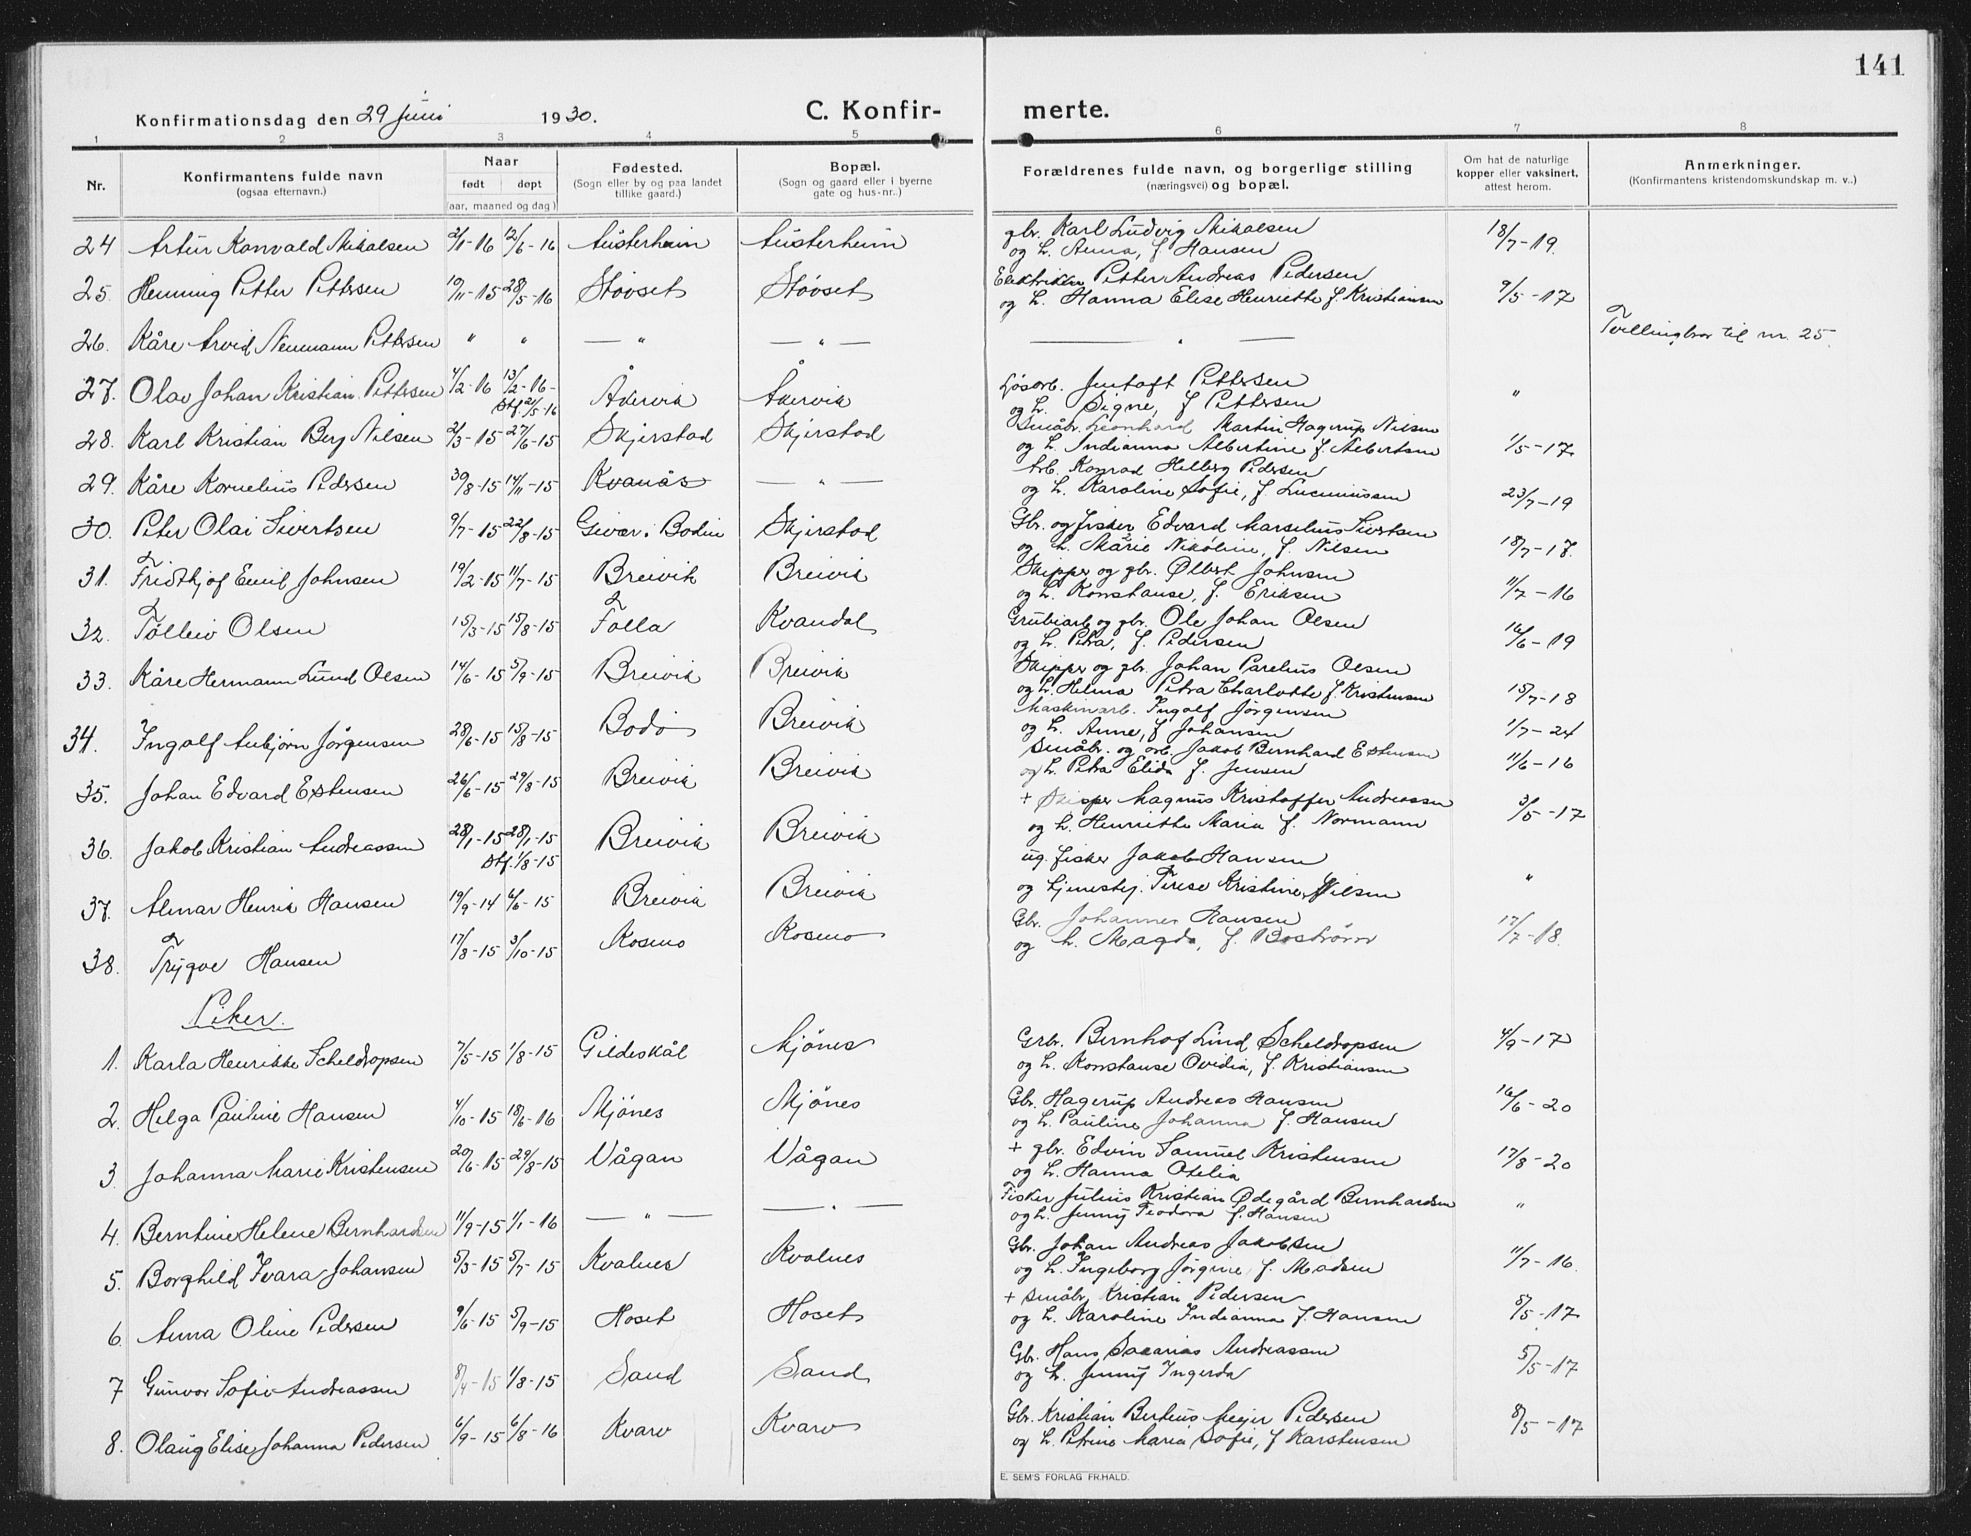 141
Konfirmationsdag den 29 Juni 1930. C. Konfir- merte.
1 2 3 4 5 6 7 8
Nr. Konfirmantens fulde navn (ogsaa efternavn.) Naar født døpt (aar, maaned og dag) Fødested. (Sogn eller by og paa landet tillike gaard.) Bopæl. (Sogn og gaard eller i byerne gate og hus-nr.) Forældrenes fulde navn, og borgerlige stilling (næringsvei) og bopæl. Om hat de naturlige kopper eller vaksinert, attest herom. Anmerkninger. (Konfirmantens kristendomskundskap m. v.)
24 Artur Konvald Mikalsen 2/1-16 12/6-16 Austerheim Austerheim gbr. Karl Ludvig Mikalsen 18/7-19
og h. Anna, f Hansen
25. Henning Petter Pettersen 10/11-15 28/5-16 Støvset Støvset Elektriker Petter Andreas Pedersen 9/5-17
og h. Hanna Elise Henriette f. Kristiansen
26. Kåre Arvid Neumann Pettersen " " — " — — " — — " — Tvillingbror til nr. 25.
27. Olav Johan Kristian Pettersen 4/2-16 13/2-16- Åkervik Åkervik Løsarb. Jentoft Pettersen "
Stf. 21/5-16 og h. Signe, f Pettersen
28. Karl Kristian Berg Nilsen 2/3-15 27/6-15 Skjerstad Skjerstad Småbr. Leonhard Martin Hagerup Nilsen 1/5-17
og h. Indianna Albertine f. Albertsen
29. Kåre Kornelius Pedersen 30/8-15 14/11-15 Kvanås — " — Arb. Konrad Helberg Pedersen 23/7-19
og h. Karoline Sofie, f
30. Peter Olai Sivertsen 9/7-15 22/8-15 Givær i Bodin Skjerstad Gbr. og fisker Edvard Marselius Sivertsen 18/7-17.
og h. Marie Nikoline, f. Nilsen
31. Fridthjof Emil Johnsen 19/2-15 11/7-15 Breivik Breivik Skipper og gbr. Olbert Johnsen 11/7-16
og h. Konstanse, f. Eriksen
32. Tølleiv Olsen 15/3-15 15/8-15 Folla Kvandal Grubearb og gbr. Ole Johan Olsen 16/6-19
og h. Petra, f. Pedersen
33. Kåre Hermann Lund Olsen 14/6-15 5/9-15 Breivik Breivik Skipper og gbr. Johan Parelius Olsen 15/7-18
og h. Helma Petra Charlotte f. Kristensen
34. Ingolf Anbjørn Jørgensen 28/6-15 15/8-15 Bodø Breivik Maskinarb. Ingolf Jørgensen 1/7-24
og h. Anne, f Johansen
35. Johan Edvard Estensen 26/6-15 29/8-15 Breivik Breivik Småbr. og arb. Jakob Bernhard Estensen 11/6-16
og h. Petra Elida f. Jensen
36. Jakob Kristian Andreassen 28/1-15 28/1-15 Breivik Breivik + Skipper Magnus Kristoffer Andreassen 3/5-17
Stf. 1/8-15 og h. Henriette Maria f. Normann
37. Almar Henrik Hansen 19/9-14 6/6-15 Breivik Breivik ug. fisker Jakob Hansen "
og tjenestepj. Terese Kristine Nilsen
38. Trygve Hansen 17/8-15 3/10-15 Kosmo Kosmo Gbr. Johannes Hansen 17/7-18.
og h. Magda, f. Bostrøm
Piker.
1. Karla Henrikke Scheldropsen 7/5-15 1/8-15 Gildeskål Mjønes Grbr. Bernhof Lind Scheldropsen 4/9-17
og h. Konstanse Ovidia, f. Kristiansen
2. Helga Pauline Hansen 4/10-15 18/6-16 Mjönes Mjönes Gbr. Hagerup Andreas Hansen 16/6-20
og h. Pauline Johanna f. Hansen
3. Johanna Marie Kristensen 20/6-15 29/8-15 Vågan Vågan + gbr. Edvin Samuel Kristensen 17/8-20
og h. Hanna Otelia
4. Berntine Helene Bernhardsen 11/9-15 1/1-16 — " — — " — Fisker Julius Kristian Ødegård Bernhardsen "
og h. Jenny Teodora f. Hansen
5. Borghild Ivara Johansen 5/3-15 5/7-15 Kvalnes Kvalnes Gbr. Johan Andreas Jakobsen 11/7-16.
og h. Ingeborg Jørgine f. Madsen
6. Anna Oline Pedersen 9/6-15 5/9-15 Hoset Hoset + Småbr. Kristian Pedersen 8/5-17
og h. Karoline Indianna f. Hansen
7 Gunvor Sofie Andreassen 8/4-15 1/8-15 Sand Sand Gbr. Hans Sakarias Andreassen 5/5-17
og h. Jenny Ingerda
8. Olaug Elise Johanna Pedersen 6/9-15 6/8-16 Kvarv Kvarv Gbr. Kristian Berteus Meyer Pedersen 8/5-17
og h. Petrine Maria Sofie, f Karstensen
E. SEM'S FORLAG FR.HALD.